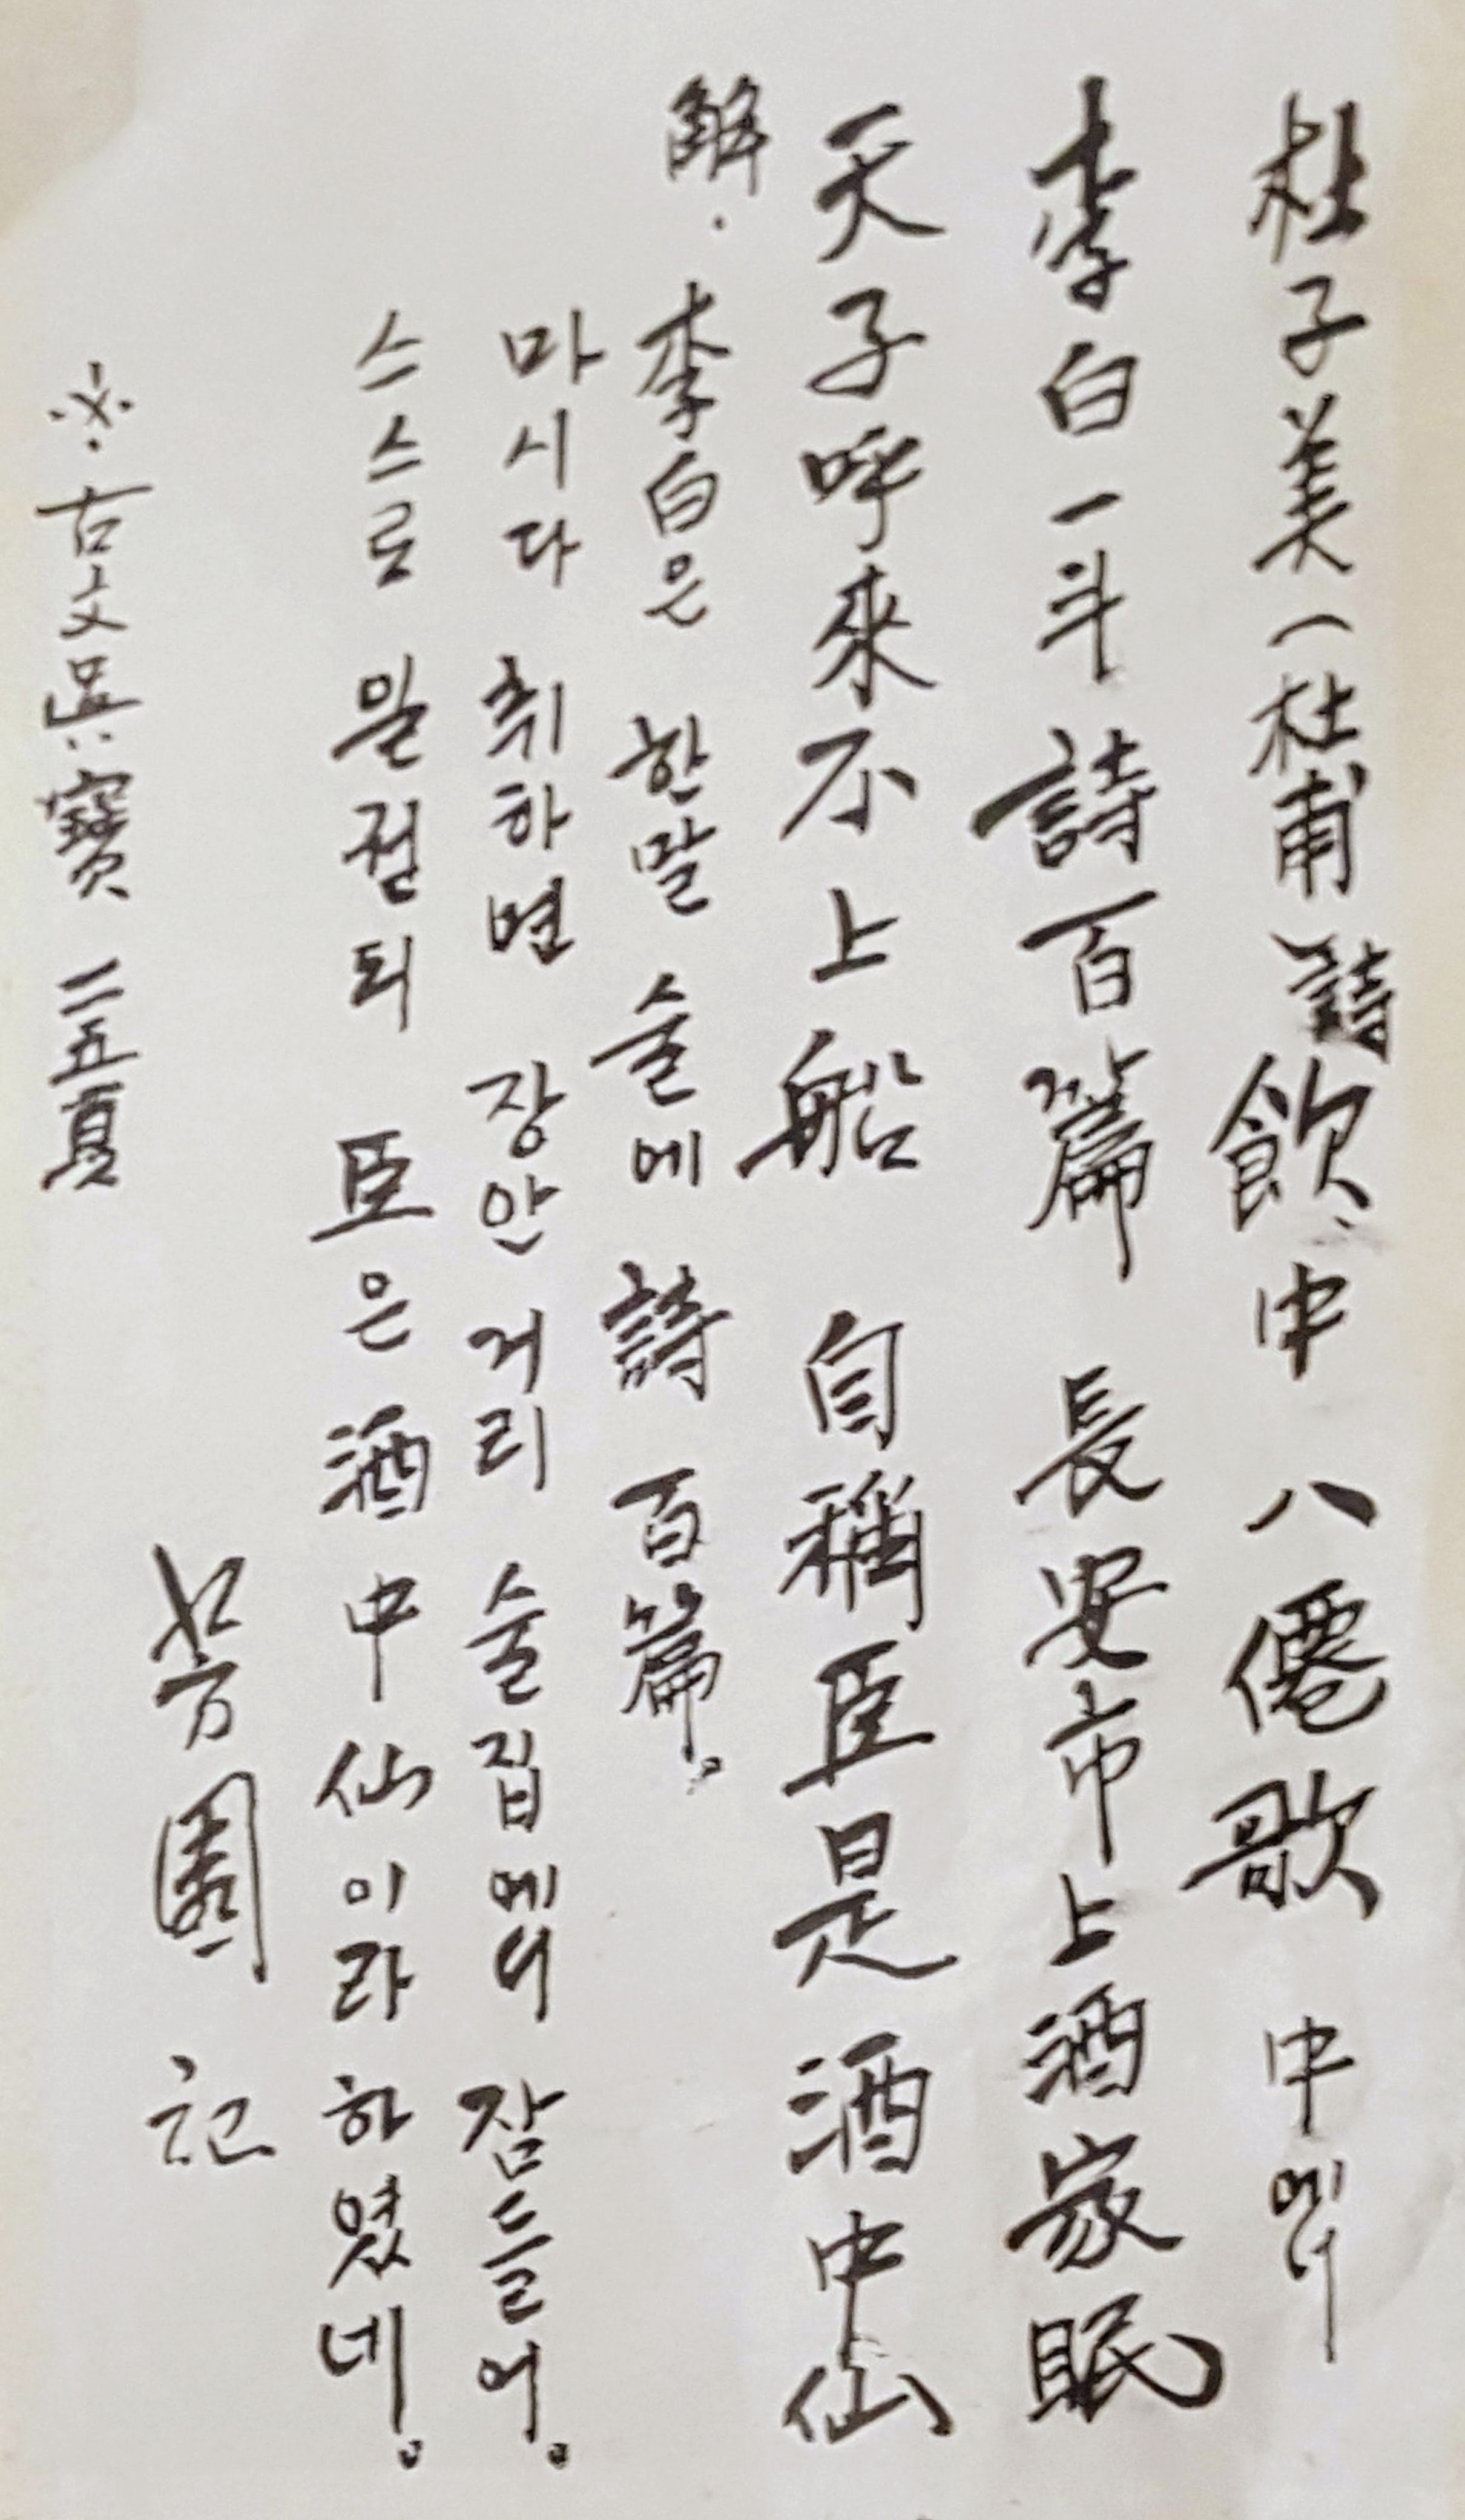 杜子美(杜甫詩 飮中八僊歌 中에서
李白一斗詩百篇 長安市上酒家眠
天子呼來不上船 自稱臣是酒中仙
解. 李白은 한말 술에 詩 百篇。
마시다 취하면 장안 거리 술집에서 잠들어。
스스로 일컫되 臣은 酒中仙이라 하였네。
芳園 記
※古文眞寶 二五頁